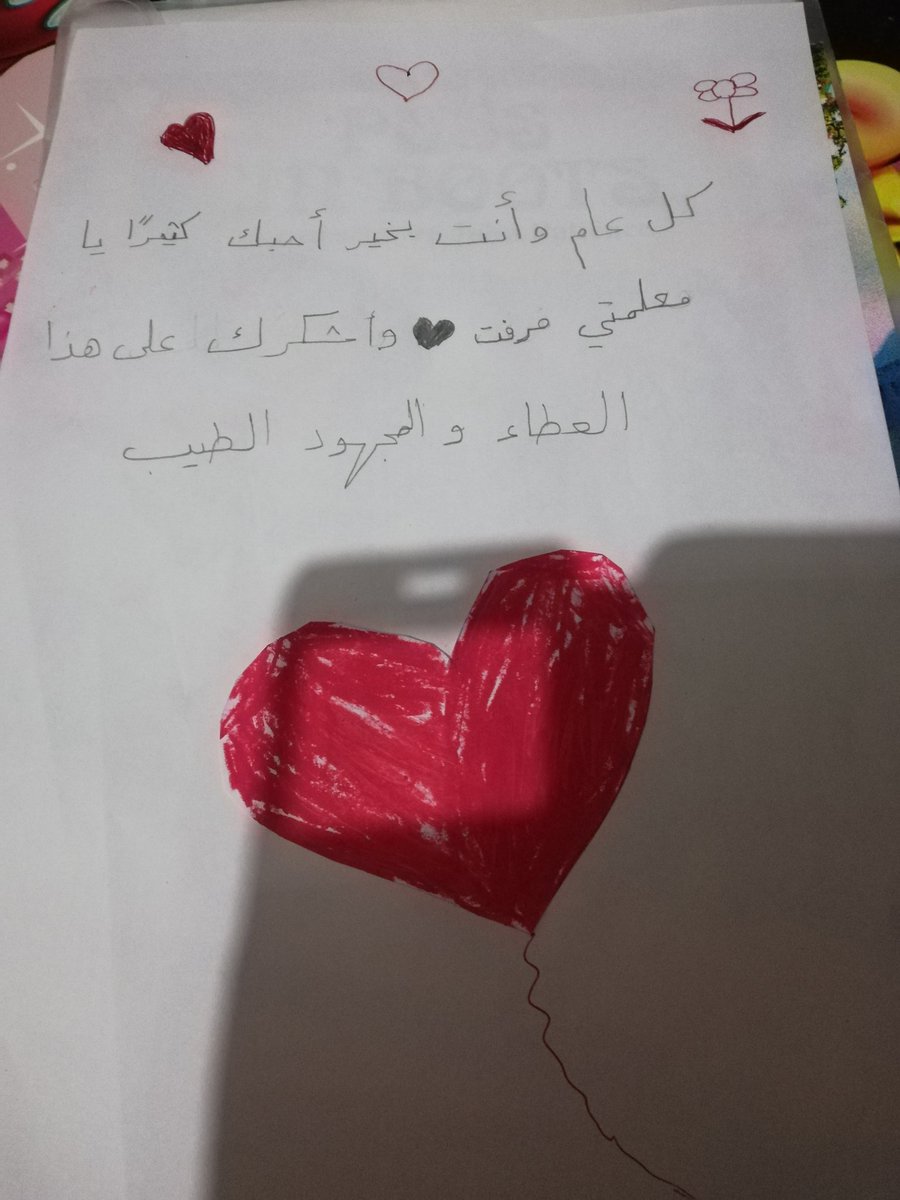 كل عام وأنت بخير أحبك كثيرًا يا
معلمتي مرفت ♥ وأشكرك على هذا
العطاء و المجهود الطيب